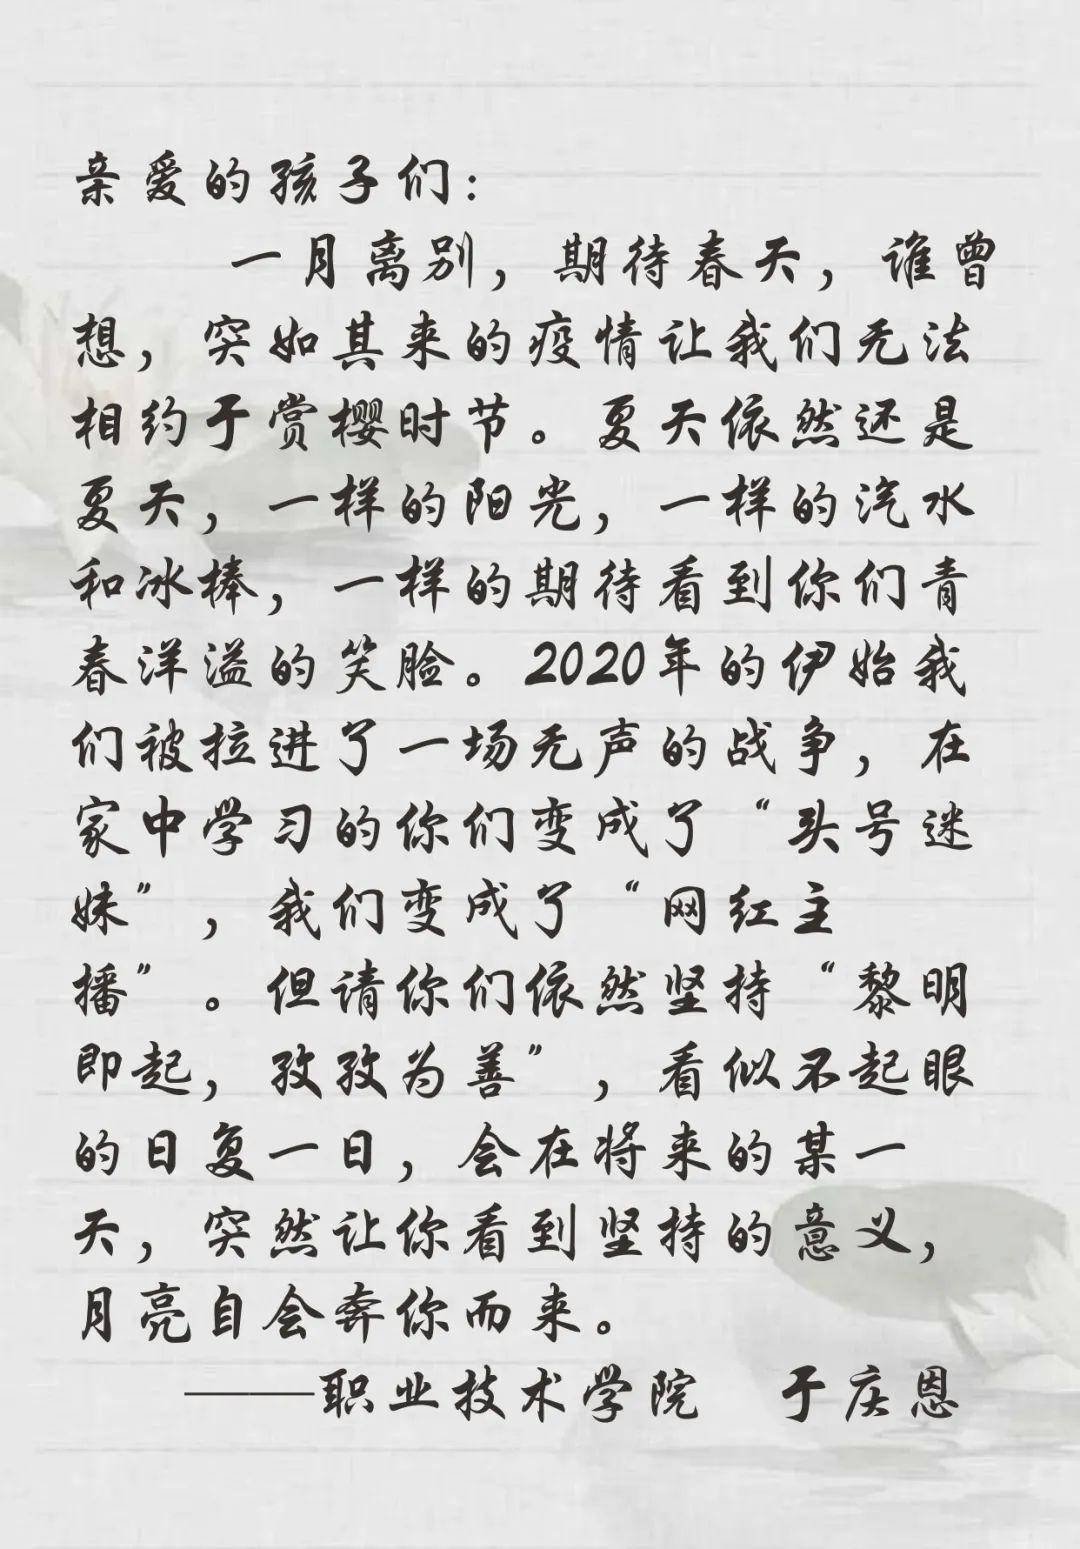 亲爱的孩子们：
一月离别，期待春天，谁曾
想，突如其来的疫情让我们无法
相约于赏樱时节。夏天依然还是
夏天，一样的阳光，一样的汽水
和冰棒，一样的期待看到你们青
春洋溢的笑脸。2020年的伊始我
们被拉进了一场无声的战争，在
家中学习的你们变成了“头号迷
妹”，我们变成了“网红主
播”。但请你们依然坚持“黎明
即起，孜孜为善”，看似不起眼
的日复一日，会在将来的某一
天，突然让你看到坚持的意义，
月亮自会奔你而来。
———职业技术学院 于庆恩